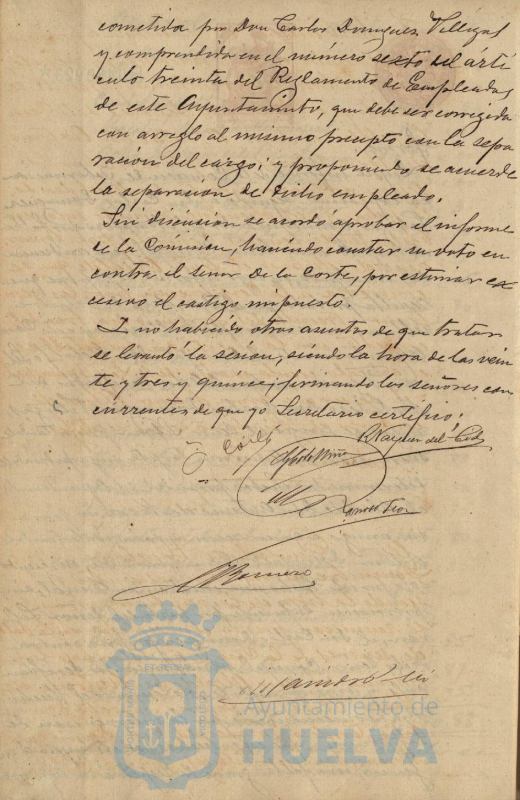 cometida por Don Carlos Dominguez Villegas
y comprendida en el número sexto del artí
culo treinta del Reglamento de Empleados
de este Ayuntamiento, que debe ser corregida
con arreglo al mismo precepto con la sepa
ración del cargo; y proponiendo se acuerde
la separación de dicho empleado.
Sin discusion se acordó aprobar el informe
de la Comisión, haciendo constar su voto en
contra el señor de la Corte, por estimar ex
cesivo el castigo impuesto.
Y no habiendo otros asuntos de que tratar
se levantó la sesión, siendo la hora de las vein
te y tres y quince; firmando los señores con
currentes de que yo Secretario certifico:
Romero
ET TERRAE
Ayuntamiento de
HUELVA